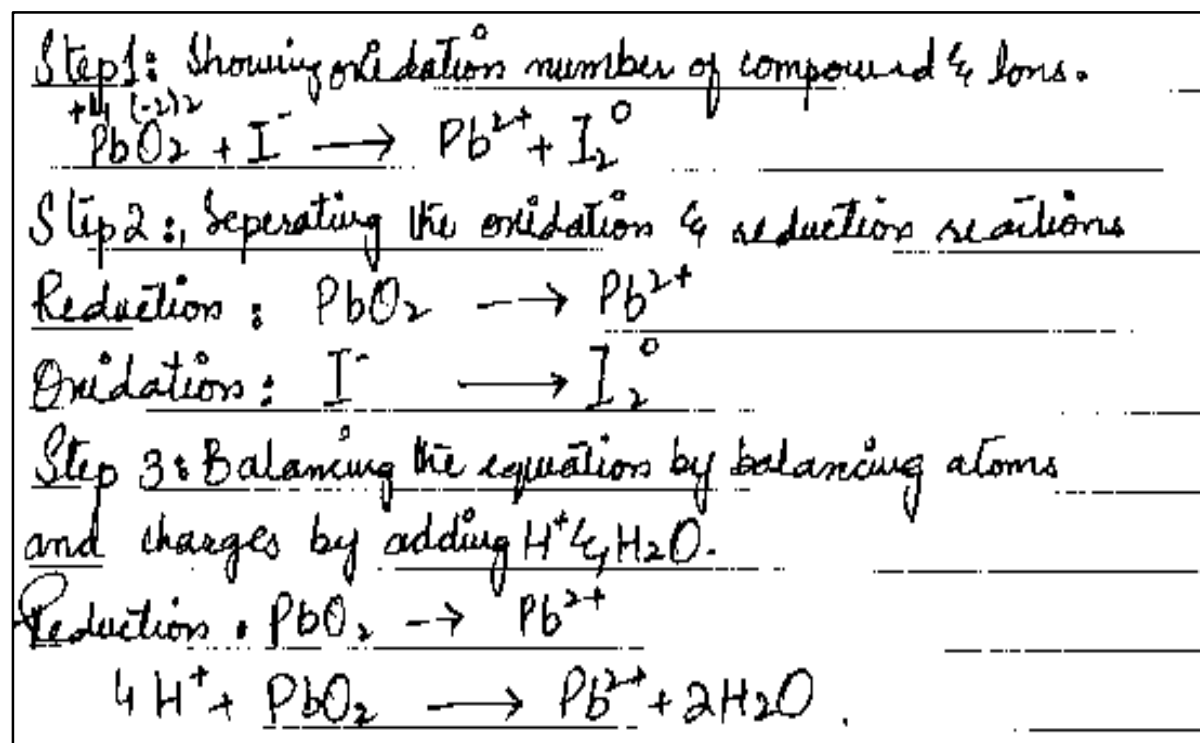 Step1: Showing oxidation number of compound & Ions.
+4 (-2)2
PbO₂ + I⁻ ⟶ Pb²⁺ + I₂⁰
Step2:, Seperating the oxidation & reduction reactions
Reduction : PbO₂ ⟶ Pb²⁺
Oxidation : I⁻ ⟶ I₂⁰
Step 3: Balancing the equation by balancing atoms
and charges by adding H⁺ & H₂O.
Reduction : PbO₂ → Pb²⁺
4H⁺ + PbO₂ ⟶ Pb²⁺ + 2H₂O.